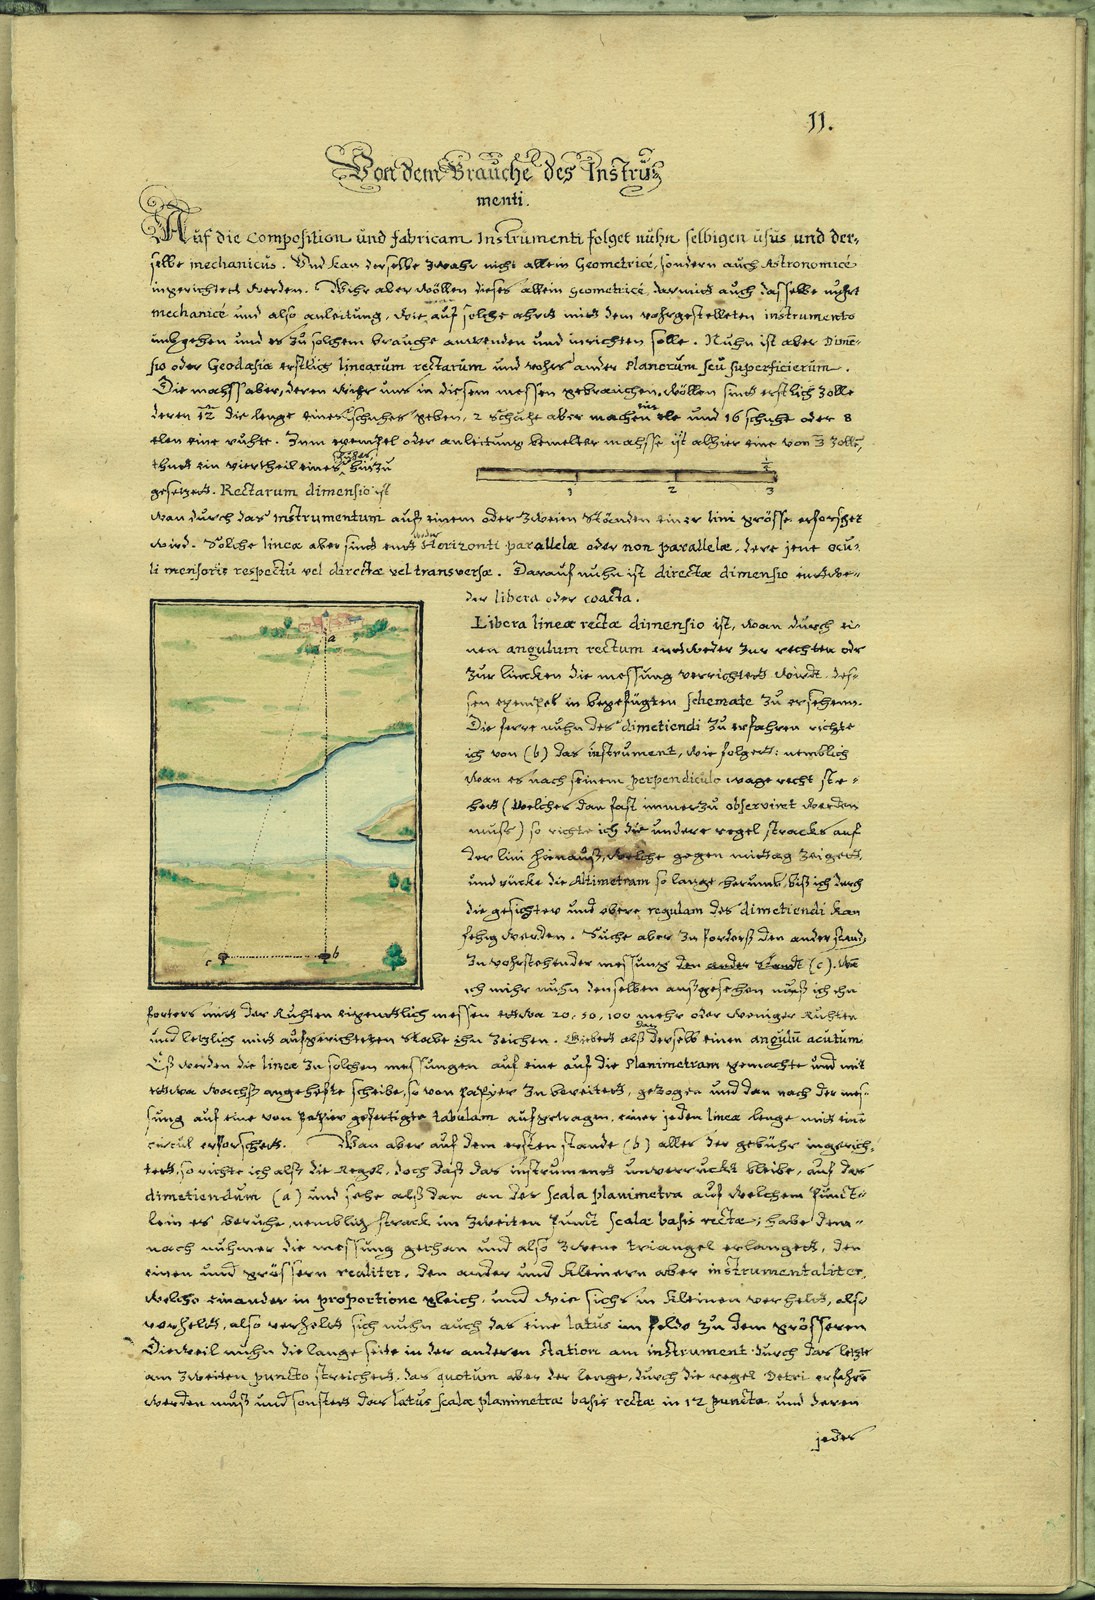 11.
Von dem Brauche des Instru⸗
menti.
Auf die Composition und fabricam Instrumenti folget nuhn selbigen usus und der⸗
selbe mechanicus. Und kan derselbe zwahr nicht allein Geometricé, sondern auch Astronomicé
ingerichtet werden. Wihr aber wöllen dieses allein geometricé, darmit auch dasselbe nuhr
mechanicé und also anleitung, wie auf solche ahrt mitt dem vohrgestelleten instrumento
umbgehen und es zu solchem brauche anwenden und inrichten solle. Nuhn ist aber Dime⸗
sio oder Geodæsia erstlich linearum rectarum und vohrs ander Planorum seu superficierum.
Die mahss aber, deren wihr uns in diesem messen gebrauchen wöllen sind erstlich Zolle
deren 12 die lenge eines schuhes geben, 2 Schuhe aber machen eine ele und 16 schuhe oder 8
elen eine ruhte. Zum exempel oder anleitung bemelter mahsse ist alhier eine von 3 Zolle,
thutt ein viertheil eines hinzu
gesetzett. Rectarum dimensio ist
1 2 3
wan durch das Instrumentum auß einem oder zweien Ständen einer lini grösse erforschet
wird. Solche lineæ aber sind entweder Horizonti parallelæ oder non parallelæ, dere jene ocu⸗
li mensoris respectu vel directæ vel transversæ. Darauf nuhn ist directæ dimensio entwe⸗
der libera oder coacta.
Libera lineæ rectæ dimensio ist, wan durch ei⸗
nen angulum rectum entweder zur rechten odr
zur lincken die messung verrichtett wirdt, des⸗
sen exempel in beygefügten schemate zu ersehenn.
Die ferre nuhn des dimetiendi zu erfahren richte
ich von (b) das instrument, wie folgett: nemblich
wan es nach seinem perpendiculo wage recht ste⸗
hett (welches dan fast immerzu observiret werden
muß) so richte ich die undere regel stracks auf
der lini hinauß, welche gegen mittag zeigett,
und rücke die Altimetram so lange herumb, biß ich durch
die gesichter und obere regulam des dimetiendi kan
fehig werden. Suche aber zu forderß den ander stand,
zu vohrstehender messung den ander Standt (c). Wan
ich mihr nuhn denselben außgesehen muß ich ihn
forters mitt der Ruhten eigentlich messen ettwa 20, 50, 100 mehr oder weniger Ruhten
und letzlich mitt aufgerichteten Stabe ihn zeichen. Giebett alß dan derselb einen angulu acutum
Eß werden die lineæ in solchen messungen auf eine auf die Planimetram gemachte und mit
ettwa wachß angeheffte scheibe, so von Papÿer zu bereitett, gezogen und dan nach der mes⸗
sung auf eine von Papier gefertigte tabulam aufgetragen, einer jeden lineæ lenge mitt eine
circul erforschett. Wan aber auf dem ersten stande (b) aller der gebühr ingerich⸗
tett, so richte ich alß die Regel, doch daß das instrument unverruckt bleibe, auf das
dimetiendum (a) und sehe alß dan an der scala planimetra auf welchem Puncte⸗
lein es beruhe, nemblig strack im zweiten Punct scalæ basis rectæ; habe dem⸗
nach nuhmer die messung gethan und also zwene triangel erlangett, den
einen und grössern realiter, den ander und kleinern aber instrumentaliter,
welche einander in proportione gleich, und wie sichs in kleinen verhelt, also
verhelt, also verhelt sich nuhn auch das eine latus im felde zu dem grösseren
Dieweil nuhn die lange seite in der anderen station am instrument durch das letzte
am zweiten puncto streichett, das quotum aber der lenge, durch die regel Detri erfahre
werden muß und sonsten das latus scalæ planimetræ basis rectæ in 12 puncta, und deren
jedes
a
b
c